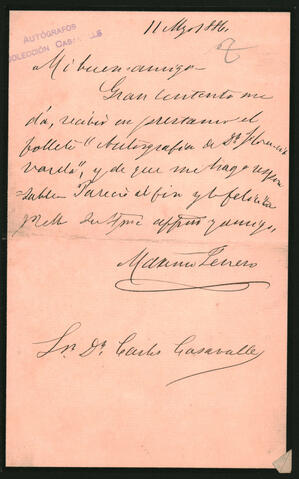 AUTÓGRAFOS
COLECCIÓN CASAVALLE
11 Mzo/886.
Mi buen amigo
Gran contento me
dá, recibir en prestamo el
folleto "Autografia de Dn Florencio
Varela", y de que me hago respon
=sable. Pareció al fin y lo felicita
por ello su affmo y amigo,
Maximo Terrero
Sr. Dn. Carlos Casavalle